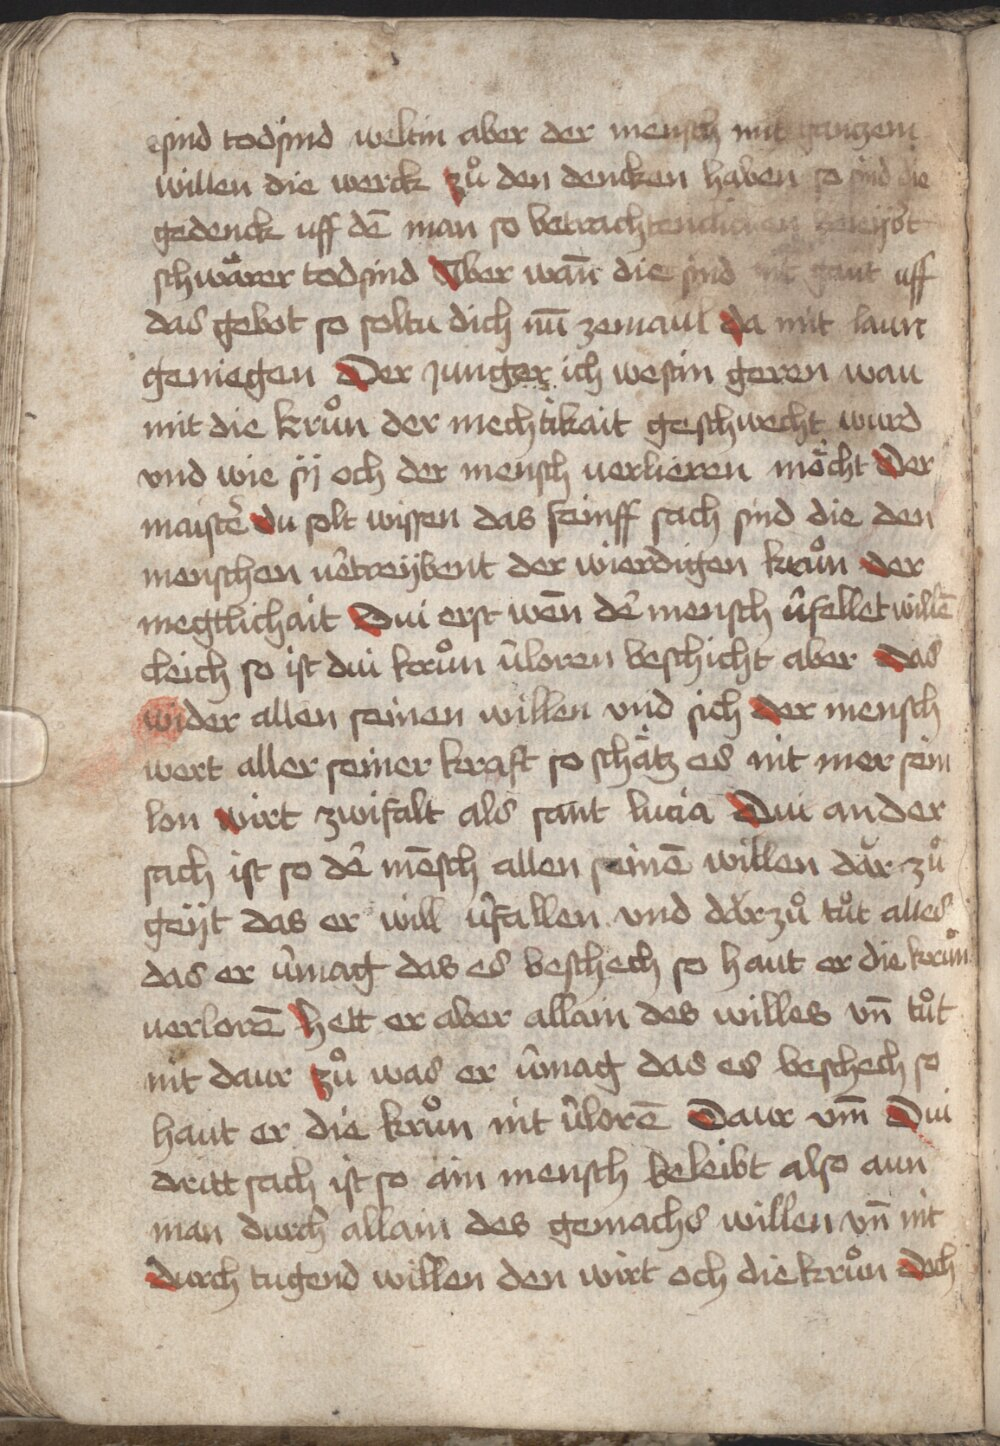 sind todsind weltin aber der mensch mit gantzem
willen die werck zů den dencken haben so sind die
gedenck uff dē man so betrachtenclichen beleybt
schwärer todsind Aber wañ die sind nit gaut uff
das gebot so soltu dich nū zemaul da mit laun
geniegen Der junger ich westin geren wau
mit die krůn der mechtikait geschwecht wurd
vnd wie sÿ och der mensch uerlieren möcht Der
maistē du solt wissen das feinff sach sind die den
menschen ūtreÿbent der wierdigen krůn der
megtlichait Dui erst wēn dē mensch ūfellet willē
cleich so ist dui krůn ūloren beschicht aber das
wider allen seinen willen vnd sich der mensch
wert aller seiner kraft so schätz es nit mer sein
lon wirt zwifalt als sant lucia Dui ander
sach ist so dē mēsch allen seinē willen dar zů
geÿt das er will ūfallen vnd darzů tůt alles
das er ūmag das es beschech so haut er die krůn
uerlorē hett er aber allain des willes vn̄ tůt
nit daur zů was er ūmag das es beschech so
haut er die krůn nit ūlorē Daur vm̄ Dui
dritt sach ist so ain mensch beleibt also aun
man durch allain des gemachs willen vn̄ nit
durch tugend willen den wirt och die krůn doch